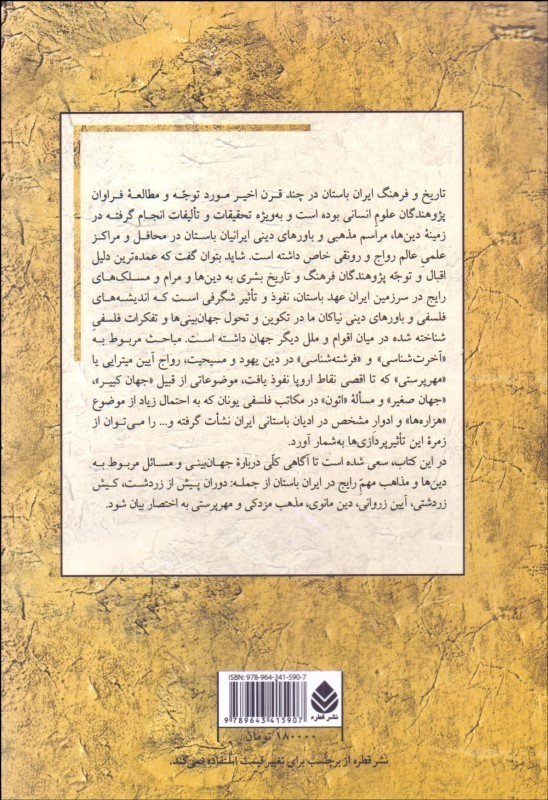 تاریخ و فرهنگ ایران باستان در چند قرن اخیر مورد توجّه و مطالعهٔ فراوان
پژوهندگان علوم انسانی بوده است و به‌ویژه تحقیقات و تألیفات انجام گرفته در
زمینهٔ دین‌ها، مراسم مذهبی و باورهای دینی ایرانیان باستان در محافل و مراکز
علمی عالم رواج و رونقی خاص داشته است. شاید بتوان گفت که عمده‌ترین دلیل
اقبال و توجّه پژوهندگان فرهنگ و تاریخ بشری به دین‌ها و مرام و مسلک‌های
رایج در سرزمین ایران عهد باستان، نفوذ و تأثیر شگرفی است که اندیشه‌های
فلسفی و باورهای دینی نیاکان ما در تکوین و تحول جهان‌بینی‌ها و تفکرات فلسفیِ
شناخته شده در میان اقوام و ملل دیگر جهان داشته است. مباحث مربوط به
«آخرت‌شناسی» و «فرشته‌شناسی» در دین یهود و مسیحیت، رواج آیین میترایی یا
«مهرپرستی» که تا اقصی نقاط اروپا نفوذ یافت، موضوعاتی از قبیل «جهان کبیر»،
«جهان صغیر» و مسألهٔ «ائون» در مکاتب فلسفی یونان که به احتمال زیاد از موضوع
«هزاره‌ها» و ادوارِ مشخص در ادیان باستانی ایران نشأت گرفته و... را می‌توان از
زمرهٔ این تأثیرپردازی‌ها به‌شمار آورد.
در این کتاب، سعی شده است تا آگاهی کلّی دربارهٔ جهان‌بینی و مسائل مربوط به
دین‌ها و مذاهب مهمّ رایج در ایران باستان از جمله: دوران پیش از زردشت، کیش
زردشتی، آیین زروانی، دین مانوی، مذهب مزدکی و مهرپرستی به اختصار بیان شود.
ISBN: 978-964-341-590-7
9 789643 415907
نشر قطره
۱۸۰۰۰۰ تومان
نشر قطره از برچسب برای تغییر قیمت استفاده نمی‌کند.